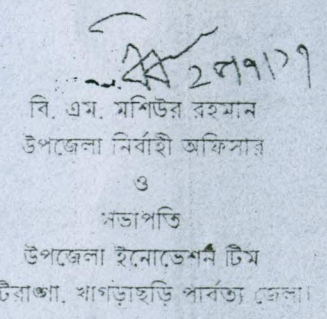 ২৫/৭/১৭
বি. এম. মশিউর রহমান
উপজেলা নির্বাহী অফিসার
ও
সভাপতি
উপজেলা ইনোভেশন টিম
টিরাঙ্গা, খাগড়াছড়ি পার্বত্য জেলা।